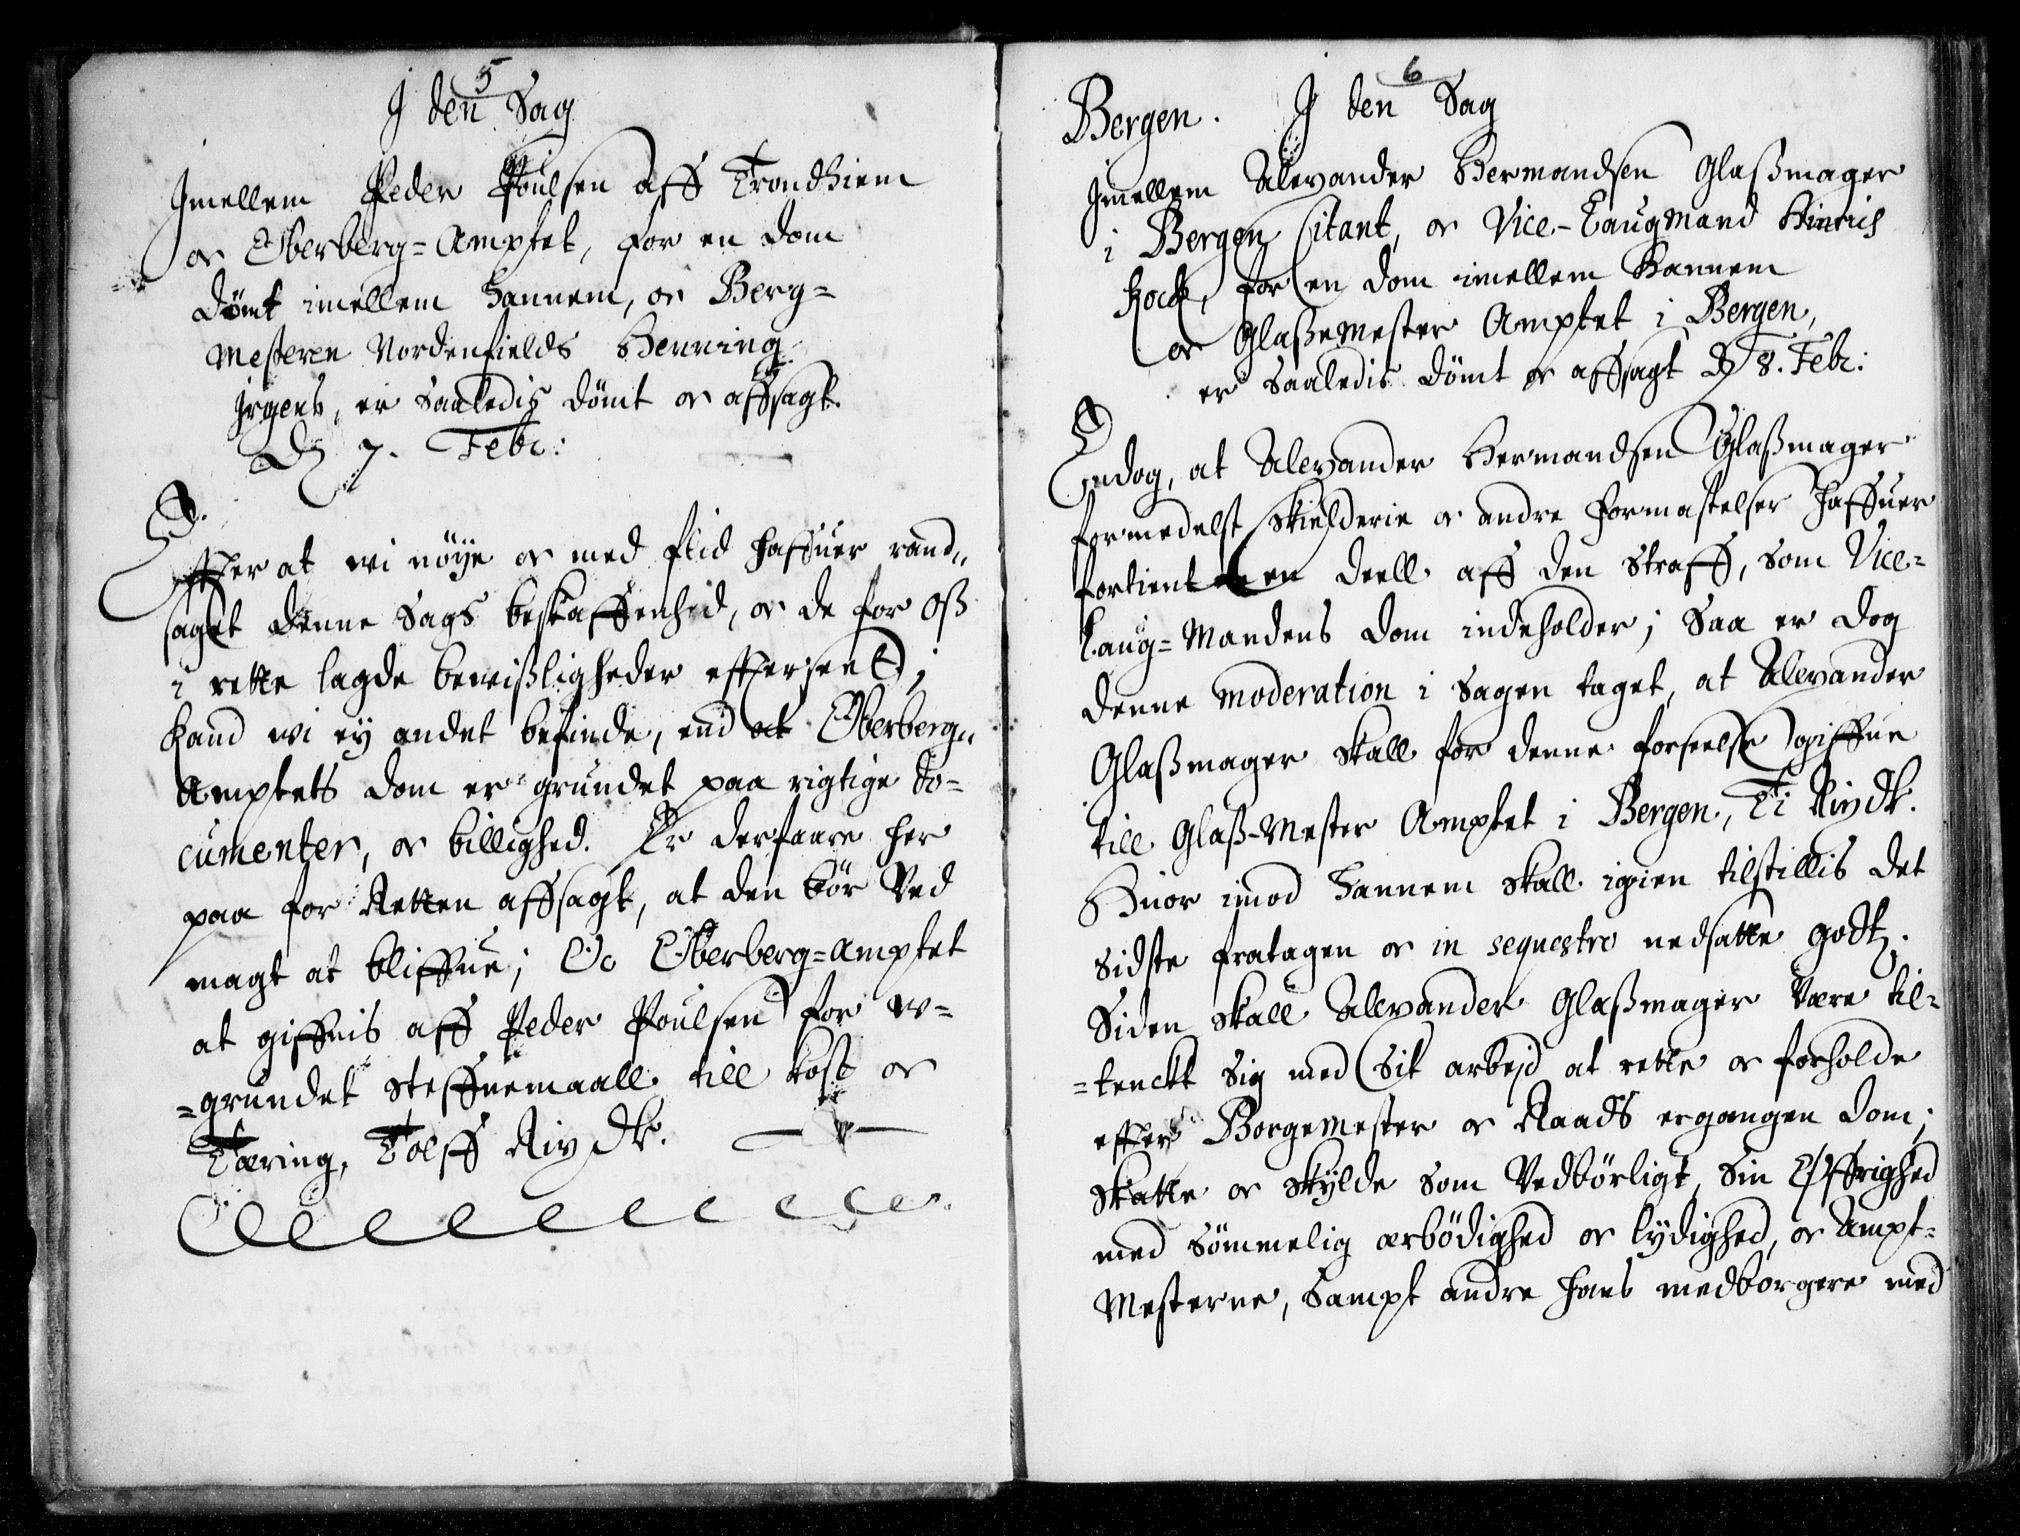 5
J den Sag
Jmellem Peder Poulsen aff Trondhiem
oc Oberberg=Amptet, for en dom
dømt imellem hannem, oc Berg=
mesteren Nordenfields Henning
Jrgens, er saaledis dømt oc affsagt.
D 7. Febr:
Effter at wi nøye oc med flid haffuer rand„
saget denne Sags beskaffenhed, oc de for oß
i rette lagde bewißligheder effterseet;
Kand wi ey andet befinde, end at Oberberg„
Amptets dom er grundet paa rigtige do=
cumenter, oc billighed. Er derfaare her
paa for Retten affsagt, at den bør Ved
magt at bliffue; Oc Oberberg=amptet
at giffuis aff Peder Poulsen for w=
=grundet Steffnemaall till kost oc
Tæring, Tolff Rixdlr.
6
Bergen. J den Sag
Jmellem Alexander Hermandsen Glaßmager
i Bergen Citant, oc Vice-Laugmand Hinrich
Kock, for en dom imellem hannem
oc Glaßemester Amptet i Bergen,
er saaledis dømt oc affsagt D 8. Febr:
Endog, at Alexander Hermandsen Glaßmager
formedelst Skielderie oc andre formastelser haffuer
fortient en deell aff den Straff, som Vice=
Laug=Mandens dom indeholder; Saa er dog
denne moderation i Sagen taget, at Alexander
Glaßmager skall for denne forseelse giffue
till Glaß-Mester Amptet i Bergen, Ti Rixdlr.
Huor imod hannem skall igien tilstillis det
sidste fratagen oc in sequestro nedsatte godtz.
Siden skall Alexander Glaßmager være til=
=tenckt sig med Sit arbejd at rette oc forholde
effter Borgemester oc Raads ergangen dom;
Skatte oc Skylde som Vedbørligt, Sin Øffrighed
med sømmelig ærbødighed oc lydighed, oc Ampt=
Mesterne, Sampt andre hans medborgere med